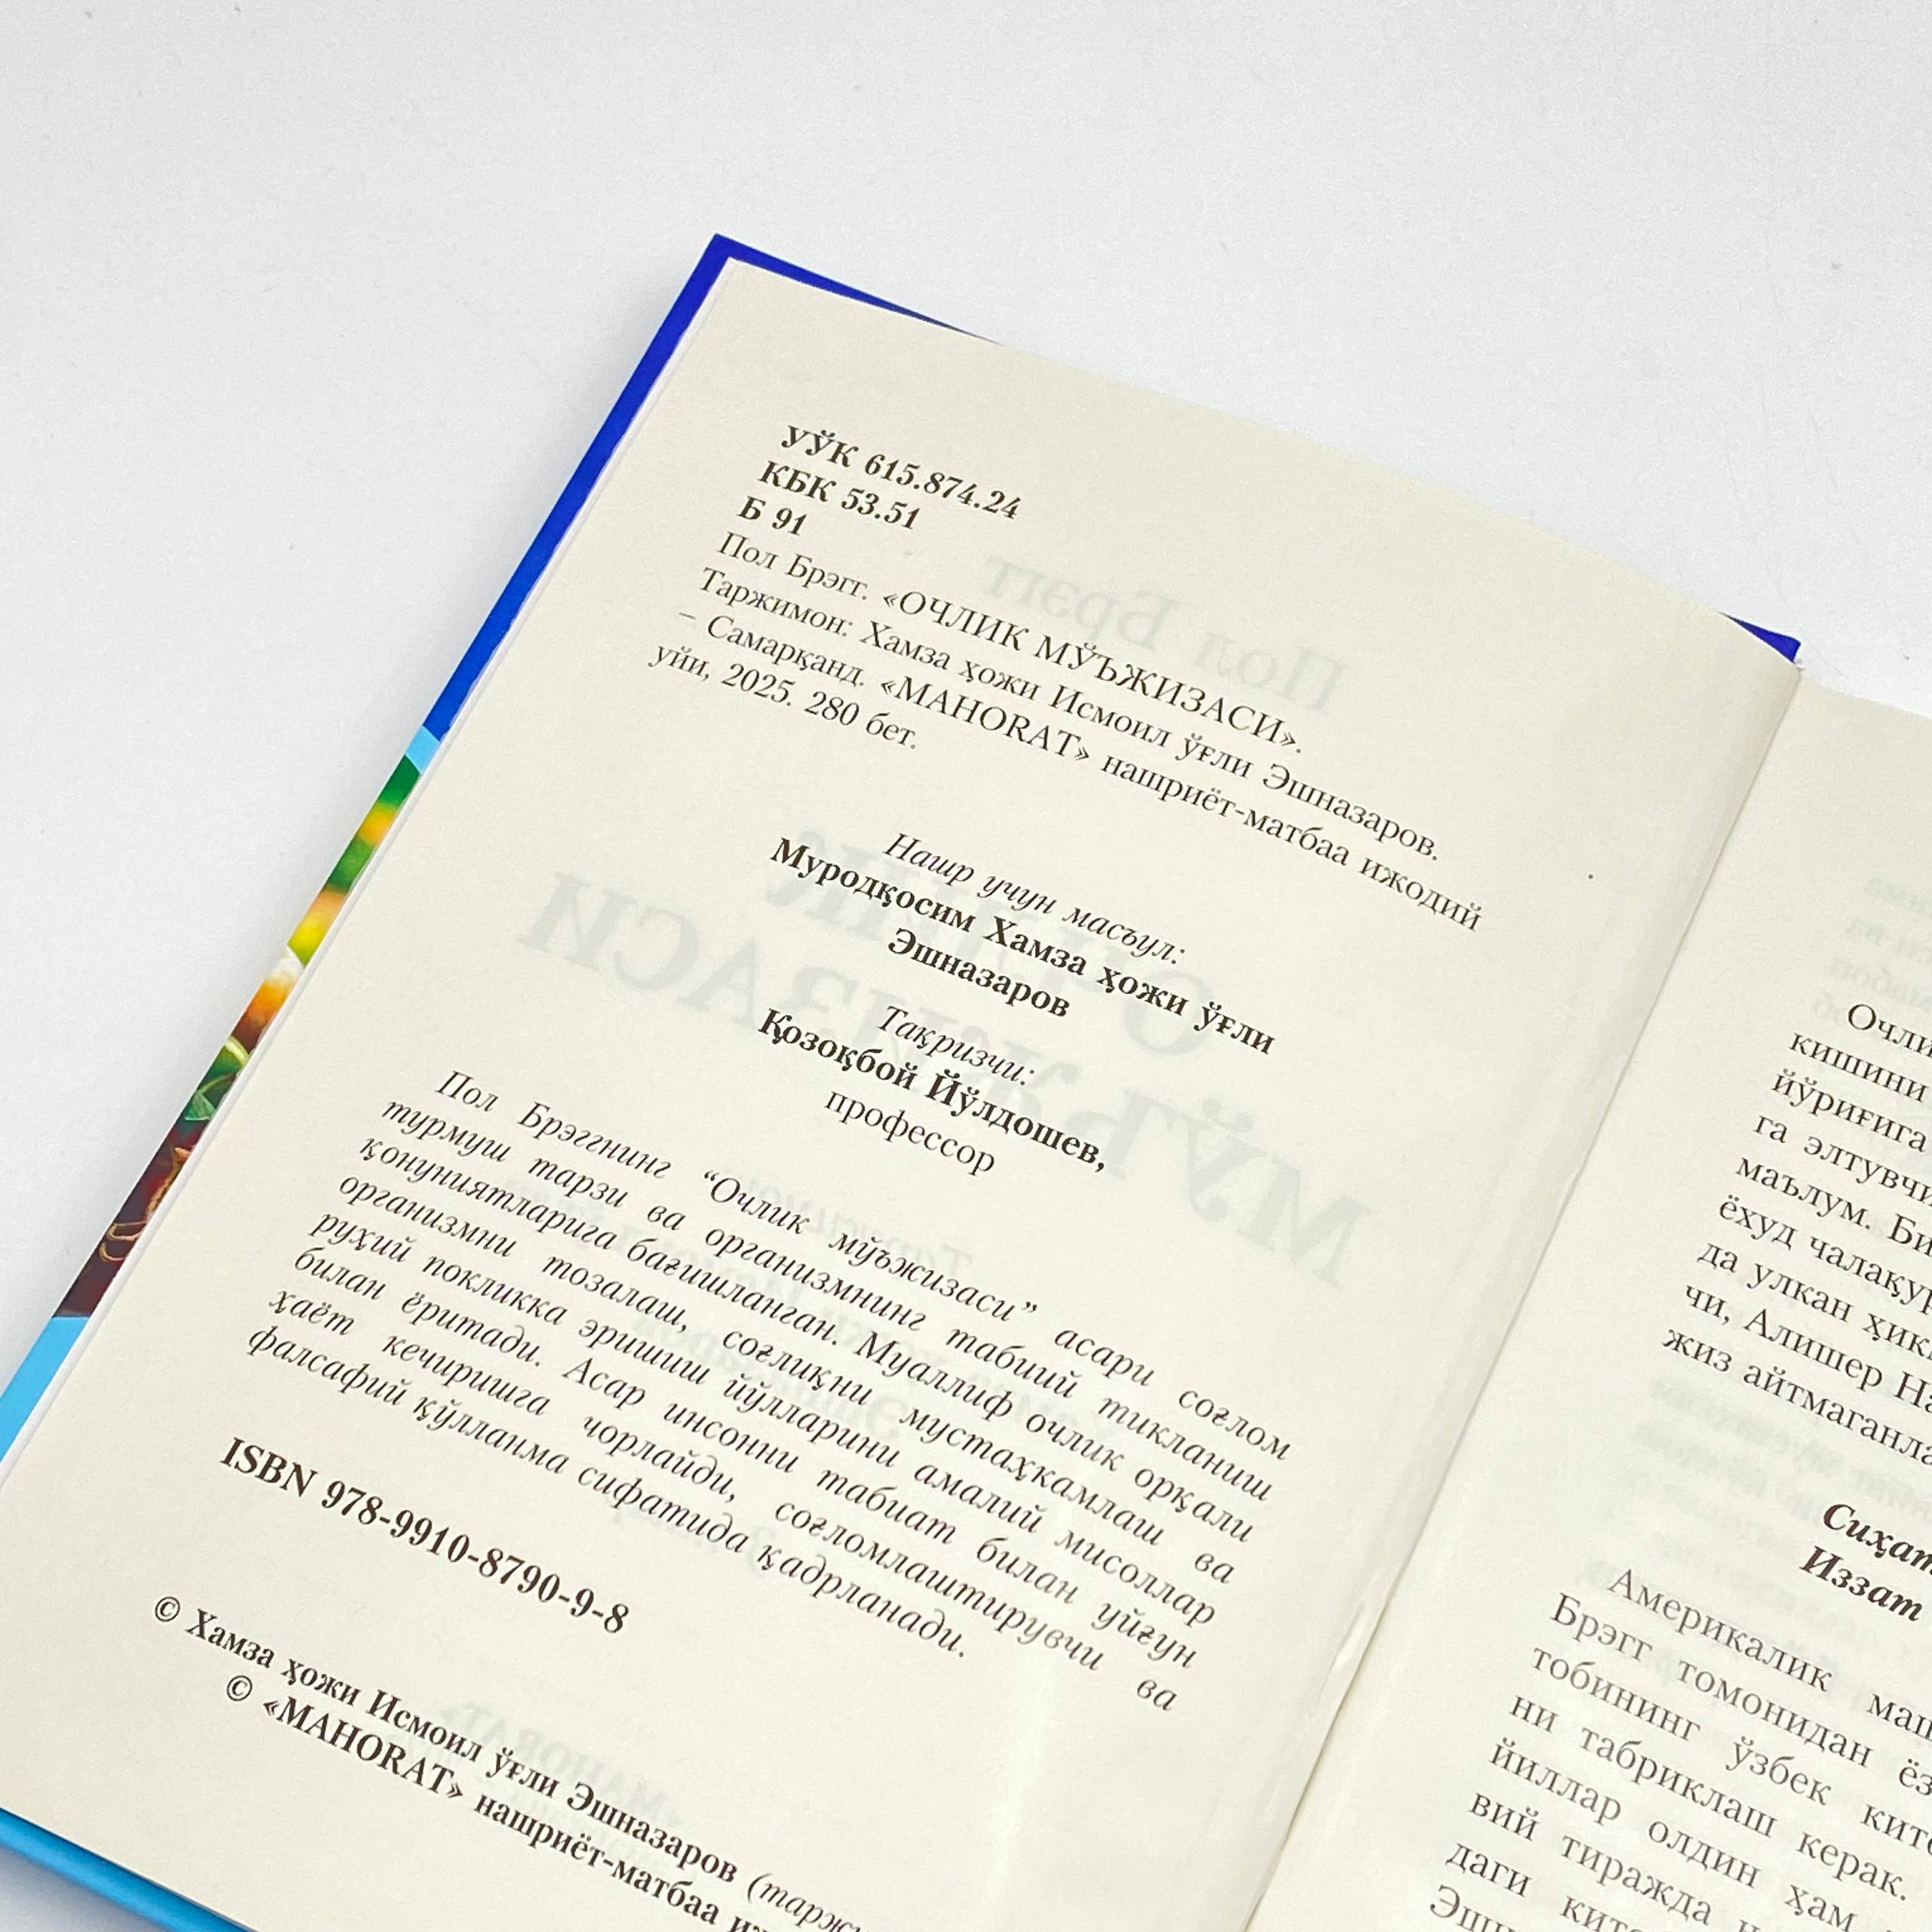 УЎК 615.874.24
КБК 53.51
Б 91
Пол Брэгг. «ОЧЛИК МЎЪЖИЗАСИ».
Таржимон: Хамза ҳожи Исмоил ўғли Эшназаров.
– Самарқанд. «MAHORAT» нашриёт-матбаа ижодий
уйи, 2025. 280 бет.
Нашр учун масъул:
Муродқосим Хамза ҳожи ўғли
Эшназаров
Тақризчи:
Қозоқбой Йўлдошев,
профессор
Пол Брэггнинг “Очлик мўъжизаси” асари соғлом
турмуш тарзи ва организмнинг табиий тикланиш
қонуниятларига бағишланган. Муаллиф очлик орқали
организмни тозалаш, соғлиқни мустаҳкамлаш ва
руҳий покликка эришиш йўлларини амалий мисоллар
билан ёритади. Асар инсонни табиат билан уйғун
ҳаёт кечиришга чорлайди, соғломлаштирувчи ва
фалсафий қўлланма сифатида қадрланади.
ISBN 978-9910-8790-9-8
© Хамза ҳожи Исмоил ўғли Эшназаров
© «MAHORAT» нашриёт-матбаа
кишини
йўриғига
га элтувчи
маълум.
ёхуд
да улкан
чи, Алишер
жиз
Иззат
Америкалик
Брэгг томонидан
тобининг ўзбек
ни табриклаш керак.
йиллар олдин ҳам
вий тиражда
даги